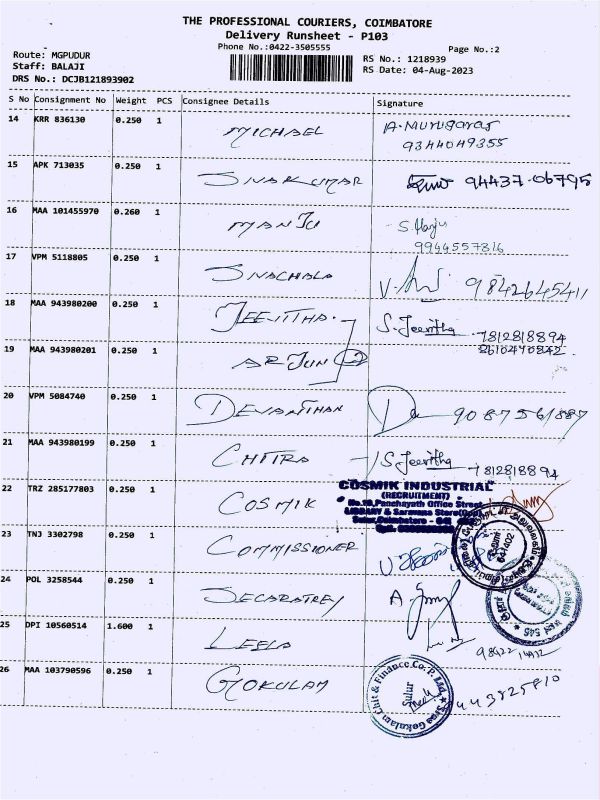 THE PROFESSIONAL COURIERS, COIMBATORE
Delivery Runsheet - P103
Phone No.:0422-3505555
Page No.:2
Route: MGPUDUR
Staff: BALAJI
DRS No.: DCJB121893902
RS No.: 1218939
RS Date: 04-Aug-2023
S No Consignment No Weight PCS Consignee Details Signature
14 KRR 836130 0.250 1 MICHAEL A. Murugaraj
9344049355
15 APK 713035 0.250 1 SIVAKUMAR 94437-06795
16 MAA 101455970 0.260 1 MANJU S. Manju
9944557816
17 VPM 5118805 0.250 1 9842645411
18 MAA 943980200 0.250 1 JEEVITHA S. Jeevitha 7812818894
8610470842
19 MAA 943980201 0.250 1 ARJUN
20 VPM 5084740 0.250 1 9087561887
21 MAA 943980199 0.250 1 CHITIRA S Jeevitha 7812818894
22 TRZ 285177803 0.250 1 COSMIK
COSMIK INDUSTRIAL
(RECRUITMENT)
No.19, Panchayath Office Street
LIBRARY & Saravana Store(Opp)
Sulur, Coimbatore - 641
23 TNJ 3302798 0.250 1 COMMISSIONER
641402
24 POL 3258544 0.250 1 SECARATREY
25 DPI 10560514 1.600 1 LEELA
26 MAA 103790596 0.250 1 GOKULAM
Sree Gokulam Chit & Finance Co. P. Ltd.
Sulur